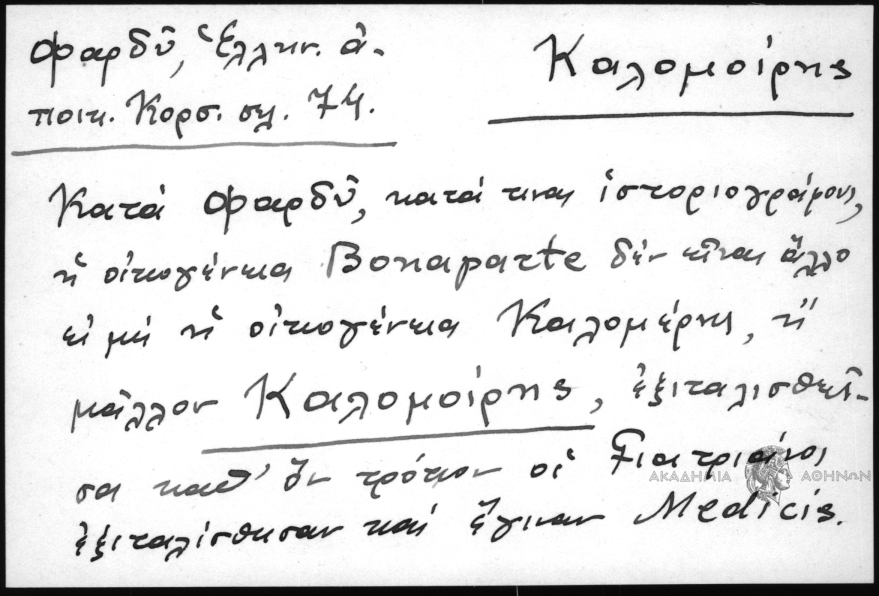 Φαρδῦ, Ἑλλην. ἀ-
ποικ. Κορσ. σελ. 74.
Καλομοίρης
Κατά Φαρδῦ, κατά τινας ἱστοριογράφους,
ἡ οἰκογένεια Bonaparte δέν εἶναι ἄλλο
εἰ μή ἡ οἰκογένεια Καλομέρης, ἤ
μᾶλλον Καλομοίρης, ἐξιταλισθεῖ-
σα καθ' ὅν τρόπον οἱ Γιατριάνοι
ἐξιταλίσθησαν καί ἔγιναν Medicis.
ΑΚΑΔΗΜΙΑ ΑΘΗΝΩΝ